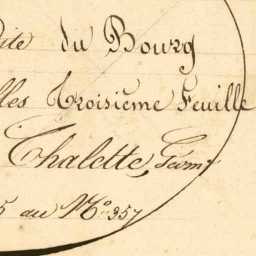 Dite du Bourg
lles Troisième Feuille
Chalette, Géom.
5 au N.º 357